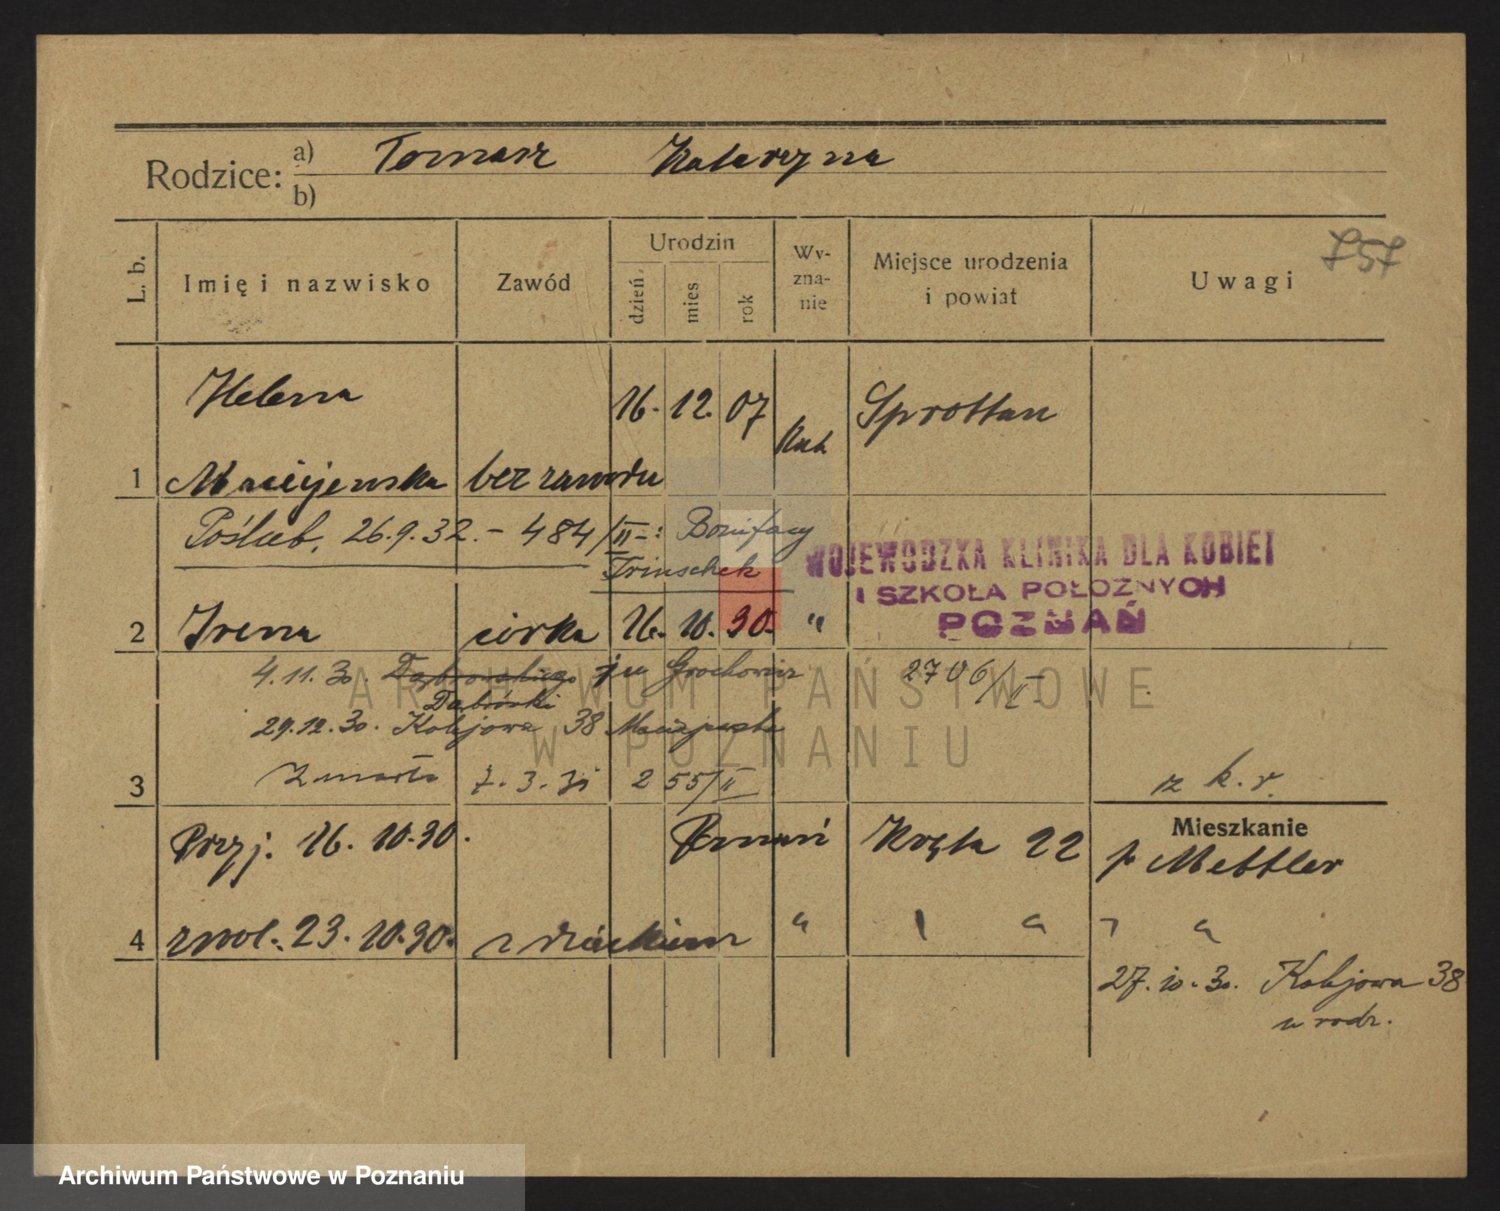 Rodzice: a) Tomasz Katarzyna
b)
757
L. b. Imię i nazwisko Zawód Urodzin dzień mies rok Wy-zna-nie Miejsce urodzenia i powiat Uwagi
Helena 16. 12. 07 Kat Sprottau
1 Maciejewska bez zawodu
Poślub. 26.9.32. - 484/II-: Bonifacy
Trinschek
WOJEWODZKA KLINIKA DLA KOBIET
I SZKOŁA POŁOŻNYCH
POZNAŃ
2 Irena córka 16. 10. 30. "
4.11.30. Dąbrowskiego 2706/II
Dąbrówki
29.12.30. Kolejowa 38
3 zmarła 7.3.31 255/II z k.r.
Mieszkanie
Przyj. 16. 10. 30. Poznań Kręta 22 p Mettler
4 zwol. 23. 10. 30. z dzieckiem " " " " "
27.10.30. Kolejowa 38
u rodz.
ARCHIWUM PAŃSTWOWE
W POZNANIU
Archiwum Państwowe w Poznaniu